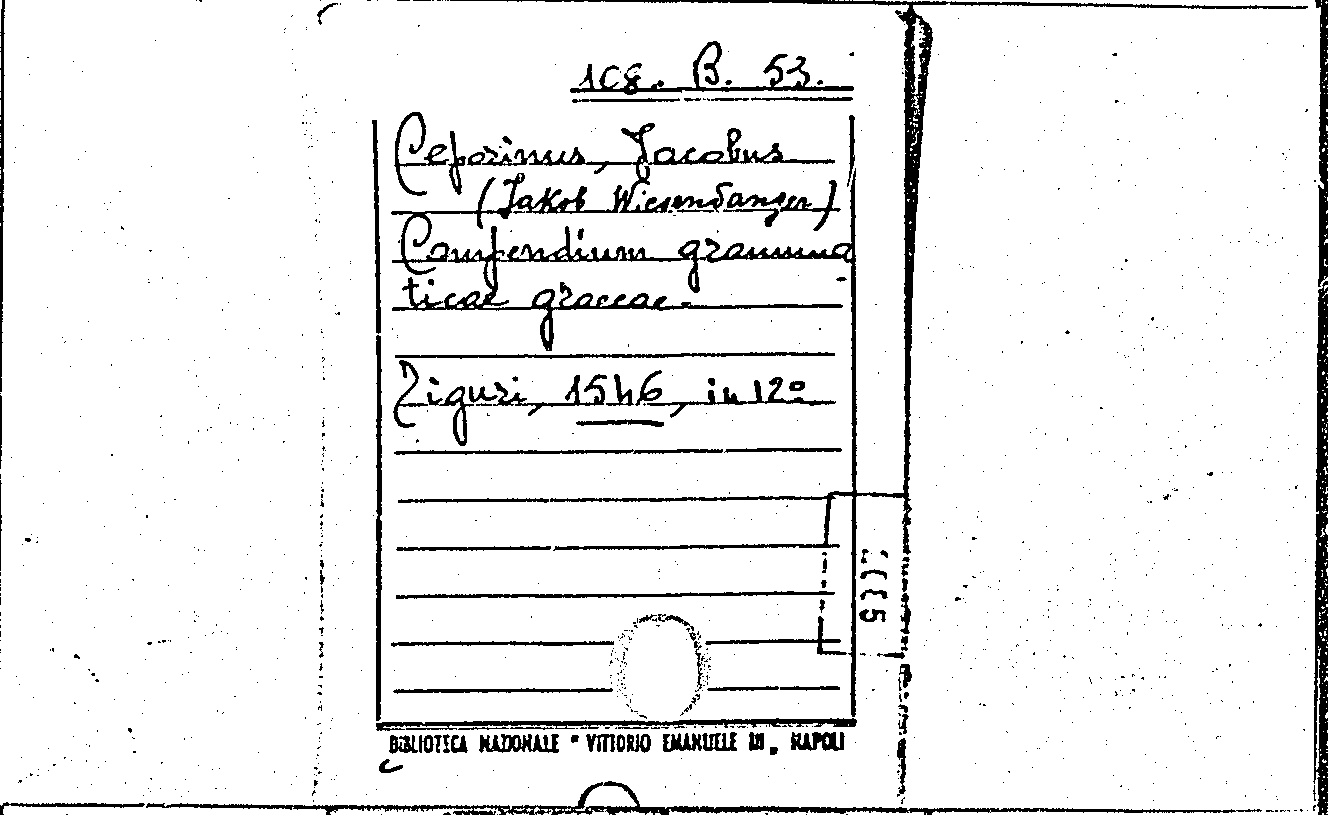 108. B. 53.
Ceporinus, Jacobus
(Jakob Wiesendanger)
Compendium gramma
ticae graecae.
Tiguri, 1546, in 12º
BIBLIOTECA NAZIONALE "VITTORIO EMANUELE III„ NAPOLI